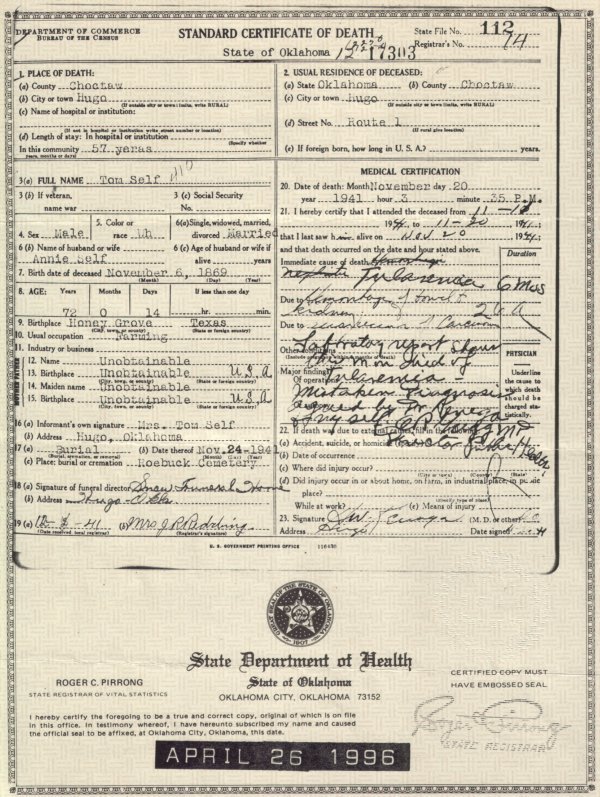 DEPARTMENT OF COMMERCE
BUREAU OF THE CENSUS
STANDARD CERTIFICATE OF DEATH
State of Oklahoma
17303
State File No. 112
Registrar's No. 74
1. PLACE OF DEATH:
(a) County Choctaw
(b) City or town Hugo
(If outside city or town limits, write RURAL)
(c) Name of hospital or institution:
(If not in hospital or institution write street number or location)
(d) Length of stay: In hospital or institution
(Specify whether
In this community 57 yeras
years, months or days)
2. USUAL RESIDENCE OF DECEASED:
(a) State Oklahoma (b) County Choctaw
(c) City or town Hugo
(If outside city or town limits, write RURAL)
(d) Street No. Route 1
(If rural give location)
(e) If foreign born, how long in U. S. A.? years.
3(a) FULL NAME Tom Self
3 (b) If veteran,
name war
3 (c) Social Security
No.
4. Sex Male
5. Color or
race Wh
6(a) Single, widowed, married,
divorced Married
6 (b) Name of husband or wife
Annie Self
6 (c) Age of husband or wife if
alive years
7. Birth date of deceased November 6, 1869
(Month) (Day) (Year)
8. AGE: Years Months Days If less than one day
72 0 14 hr. min.
9. Birthplace Honey Grove Texas
(City, town, or county) (State or foreign country)
10. Usual occupation Farming
11. Industry or business
12. Name Unobtainable
13. Birthplace Unobtainable U.S.A
(City, town, or county) (State or foreign country)
14. Maiden name Unobtainable
15. Birthplace Unobtainable U.S.A
(City, town, or county) (State or foreign country)
16 (a) Informant's own signature Mrs. Tom Self
(b) Address Hugo, Oklahoma
17 (a) Burial (b) Date thereof Nov. 24-1941
(c) Place; burial or cremation Roebuck Cemetery
18 (a) Signature of funeral director Funeral Home
(b) Address Hugo Okla
19 (a) 12- -41 (b) Mrs J R
(Date received local registrar) (Registrar's signature)
MEDICAL CERTIFICATION
20. Date of death: Month November day 20
year 1941 hour 3 minute 35 P.M.
21. I hereby certify that I attended the deceased from 11-
1941 to 11-20 1941;
that I last saw h alive on Nov 20 1941
and that death occurred on the date and hour stated above.
Duration
Immediate cause of death
Tularemia 6 Mos
Due to
Due to
Other conditions
Laboratory report shows
this Man died of
Major findings:
Of operations
Tularemia -
Mistaken Diagnosis
PHYSICIAN
Underline
the cause to
which death
should be
charged sta-
tistically.
22. If death was due to external causes, fill in the following:
(a) Accident, suicide, or homicide
(b) Date of occurrence
(c) Where did injury occur?
(City or town) (County) (State)
(d) Did injury occur in or about home, on farm, in industrial place, in public
place?
(Specify type of place)
While at work? (e) Means of injury
23. Signature (M. D. or other)
Address Hugo Date signed
U. S. GOVERNMENT PRINTING OFFICE 116430
GREAT SEAL OF THE STATE OF OKLAHOMA 1907
State Department of Health
State of Oklahoma
OKLAHOMA CITY, OKLAHOMA 73152
ROGER C. PIRRONG
STATE REGISTRAR OF VITAL STATISTICS
CERTIFIED COPY MUST
HAVE EMBOSSED SEAL
I hereby certify the foregoing to be a true and correct copy, original of which is on file
in this office. In testimony whereof, I have hereunto subscribed my name and caused
the official seal to be affixed, at Oklahoma City, Oklahoma, this date.
Roger C. Pirrong
STATE REGISTRAR
APRIL 26 1996